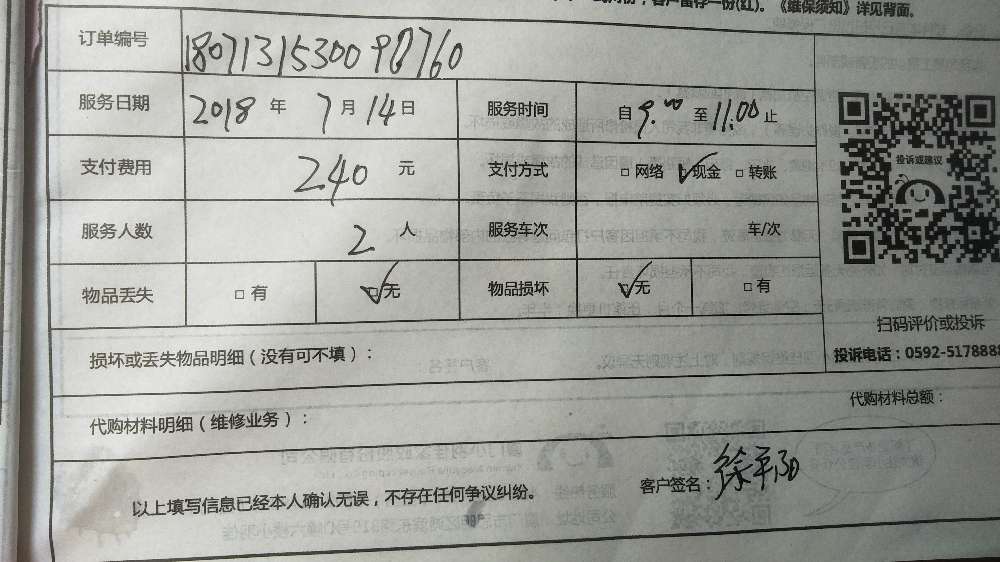 客户留存一份(红)。《维保须知》详见背面。
订单编号 180713153009 0760
服务日期 2018 年 7 月 14 日 服务时间 自 9.00 至 11:00 止
支付费用 240 元 支付方式 □ 网络 ☑ 现金 □ 转账
投诉或建议
服务人数 2 人 服务车次 车/次
物品丢失 □ 有 ☑ 无 物品损坏 ☑ 无 □ 有
扫码评价或投诉
损坏或丢失物品明细（没有可不填）：
投诉电话：0592-5178888
代购材料明细（维修业务）：
代购材料总额：
以上填写信息已经本人确认无误，不存在任何争议纠纷。
客户签名：徐平阳